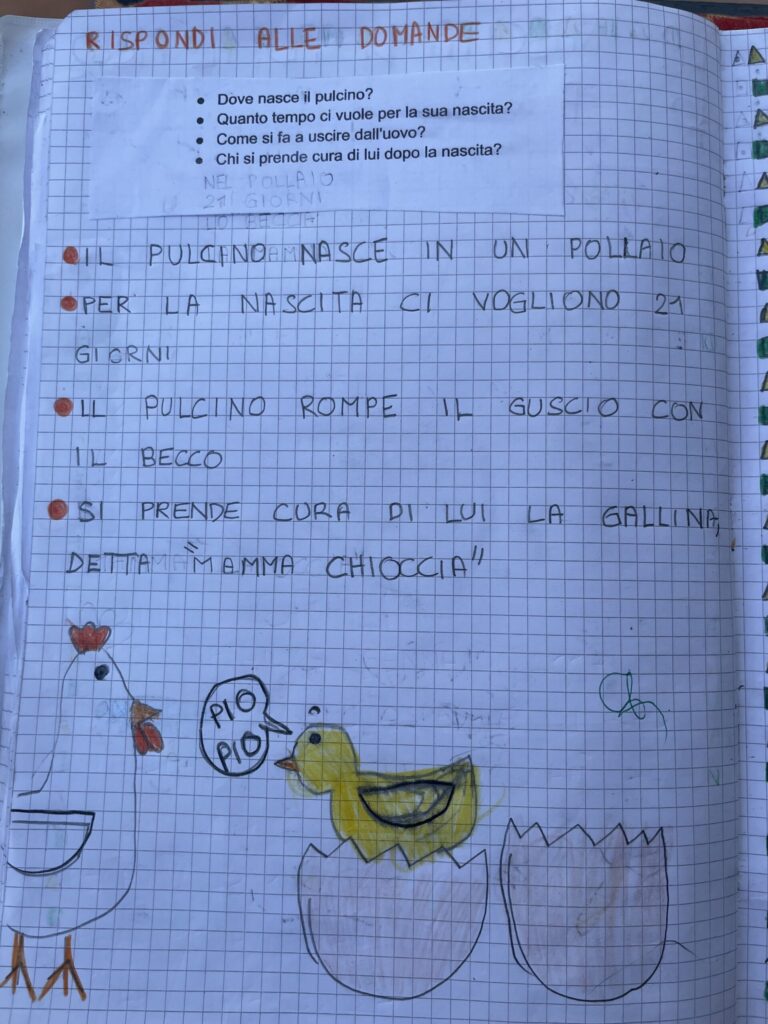 RISPONDI ALLE DOMANDE
• Dove nasce il pulcino?
• Quanto tempo ci vuole per la sua nascita?
• Come si fa a uscire dall'uovo?
• Chi si prende cura di lui dopo la nascita?
NEL POLLAIO
21 GIORNI
LO BECCA
• IL PULCINO NASCE IN UN POLLAIO
• PER LA NASCITA CI VOGLIONO 21
GIORNI
• IL PULCINO ROMPE IL GUSCIO CON
IL BECCO
• SI PRENDE CURA DI LUI LA GALLINA,
DETTA "MAMMA CHIOCCIA"
PIO
PIO